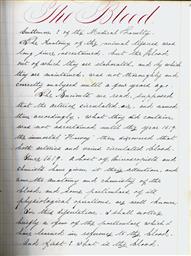 The Blood
Gentlemen of the Medical Faculty
The Anatomy of the animal ligand was
long since ascertained. But the blood,
out of which they are elaborated, and by which
they are maintained, was not thoroughly and
correctly analyzed until a few years ago.
The Ancients we read, supposed
that the arteries circulated air, and named
them accordingly. What they did contain,
was not ascertained until the year 1619
the immortal Harvey then discovered that
both arteries and veins circulated blood.
Since 1619, a host of
chemists have given it their attention, and
now the anatomy and chemistry of the
blood and some particulars of its
physiological operations are well known.
In this dissertation, I shall notice
briefly a few of the particulars which I
have learned in reference to the blood.
And first: what is the blood.